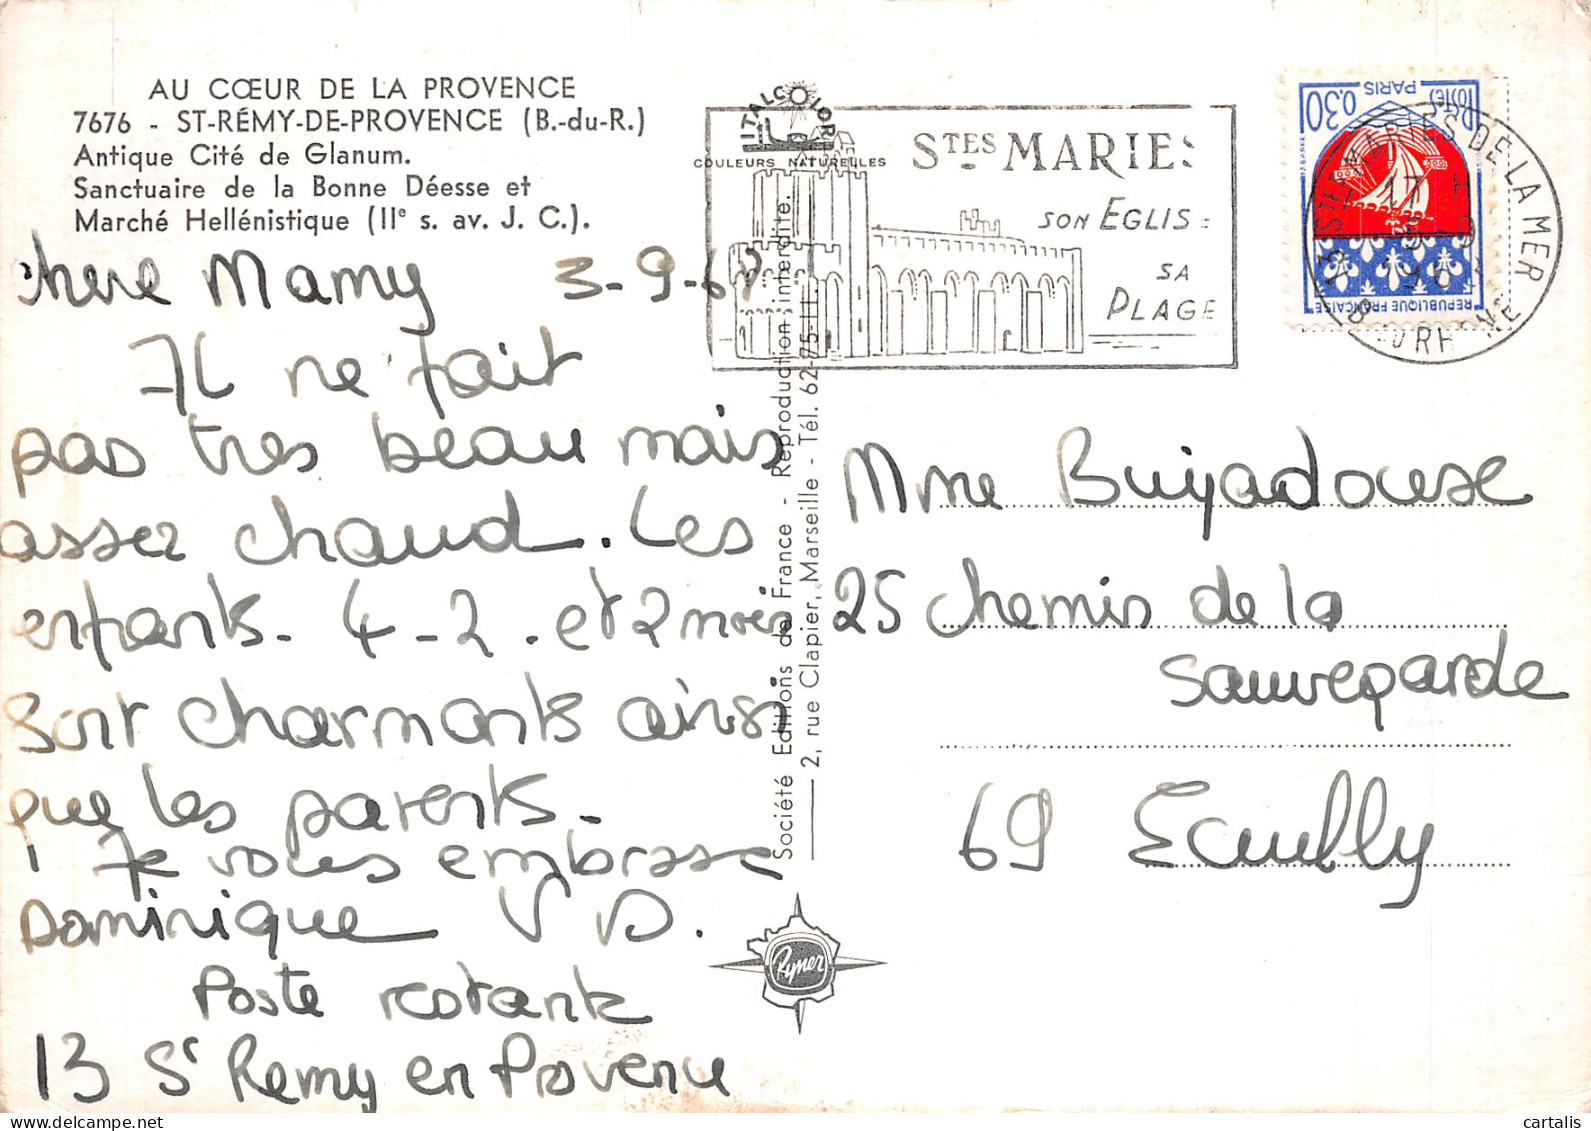 AU CŒUR DE LA PROVENCE
7676 - ST-RÉMY-DE-PROVENCE (B.-du-R.)
Antique Cité de Glanum.
Sanctuaire de la Bonne Déesse et
Marché Hellénistique (IIe s. av. J. C.).
chere Mamy 3-9-68
Il ne fait
pas tres beau mais
assez chaud. Les
enfants - 4 - 2 . et 2 mois
sont charmants ainsi
que les parents -
Je vous embrasse
Dominique V D.
Poste restante
13 St Remy en Provence
ITALCOLOR
COULEURS NATURELLES
STES MARIES
SON EGLISE
SA
PLAGE
Société Editions de France - Reproduction interdite.
2, rue Clapier, Marseille - Tél. 62-75-11
Ryner
0,30 PARIS POSTES
REPUBLIQUE FRANÇAISE
13 STES MARIES DE LA MER
B. DU RHONE
Mme Buyadouse
25 chemin de la
Sauvegarde
69 Ecully
cartalis